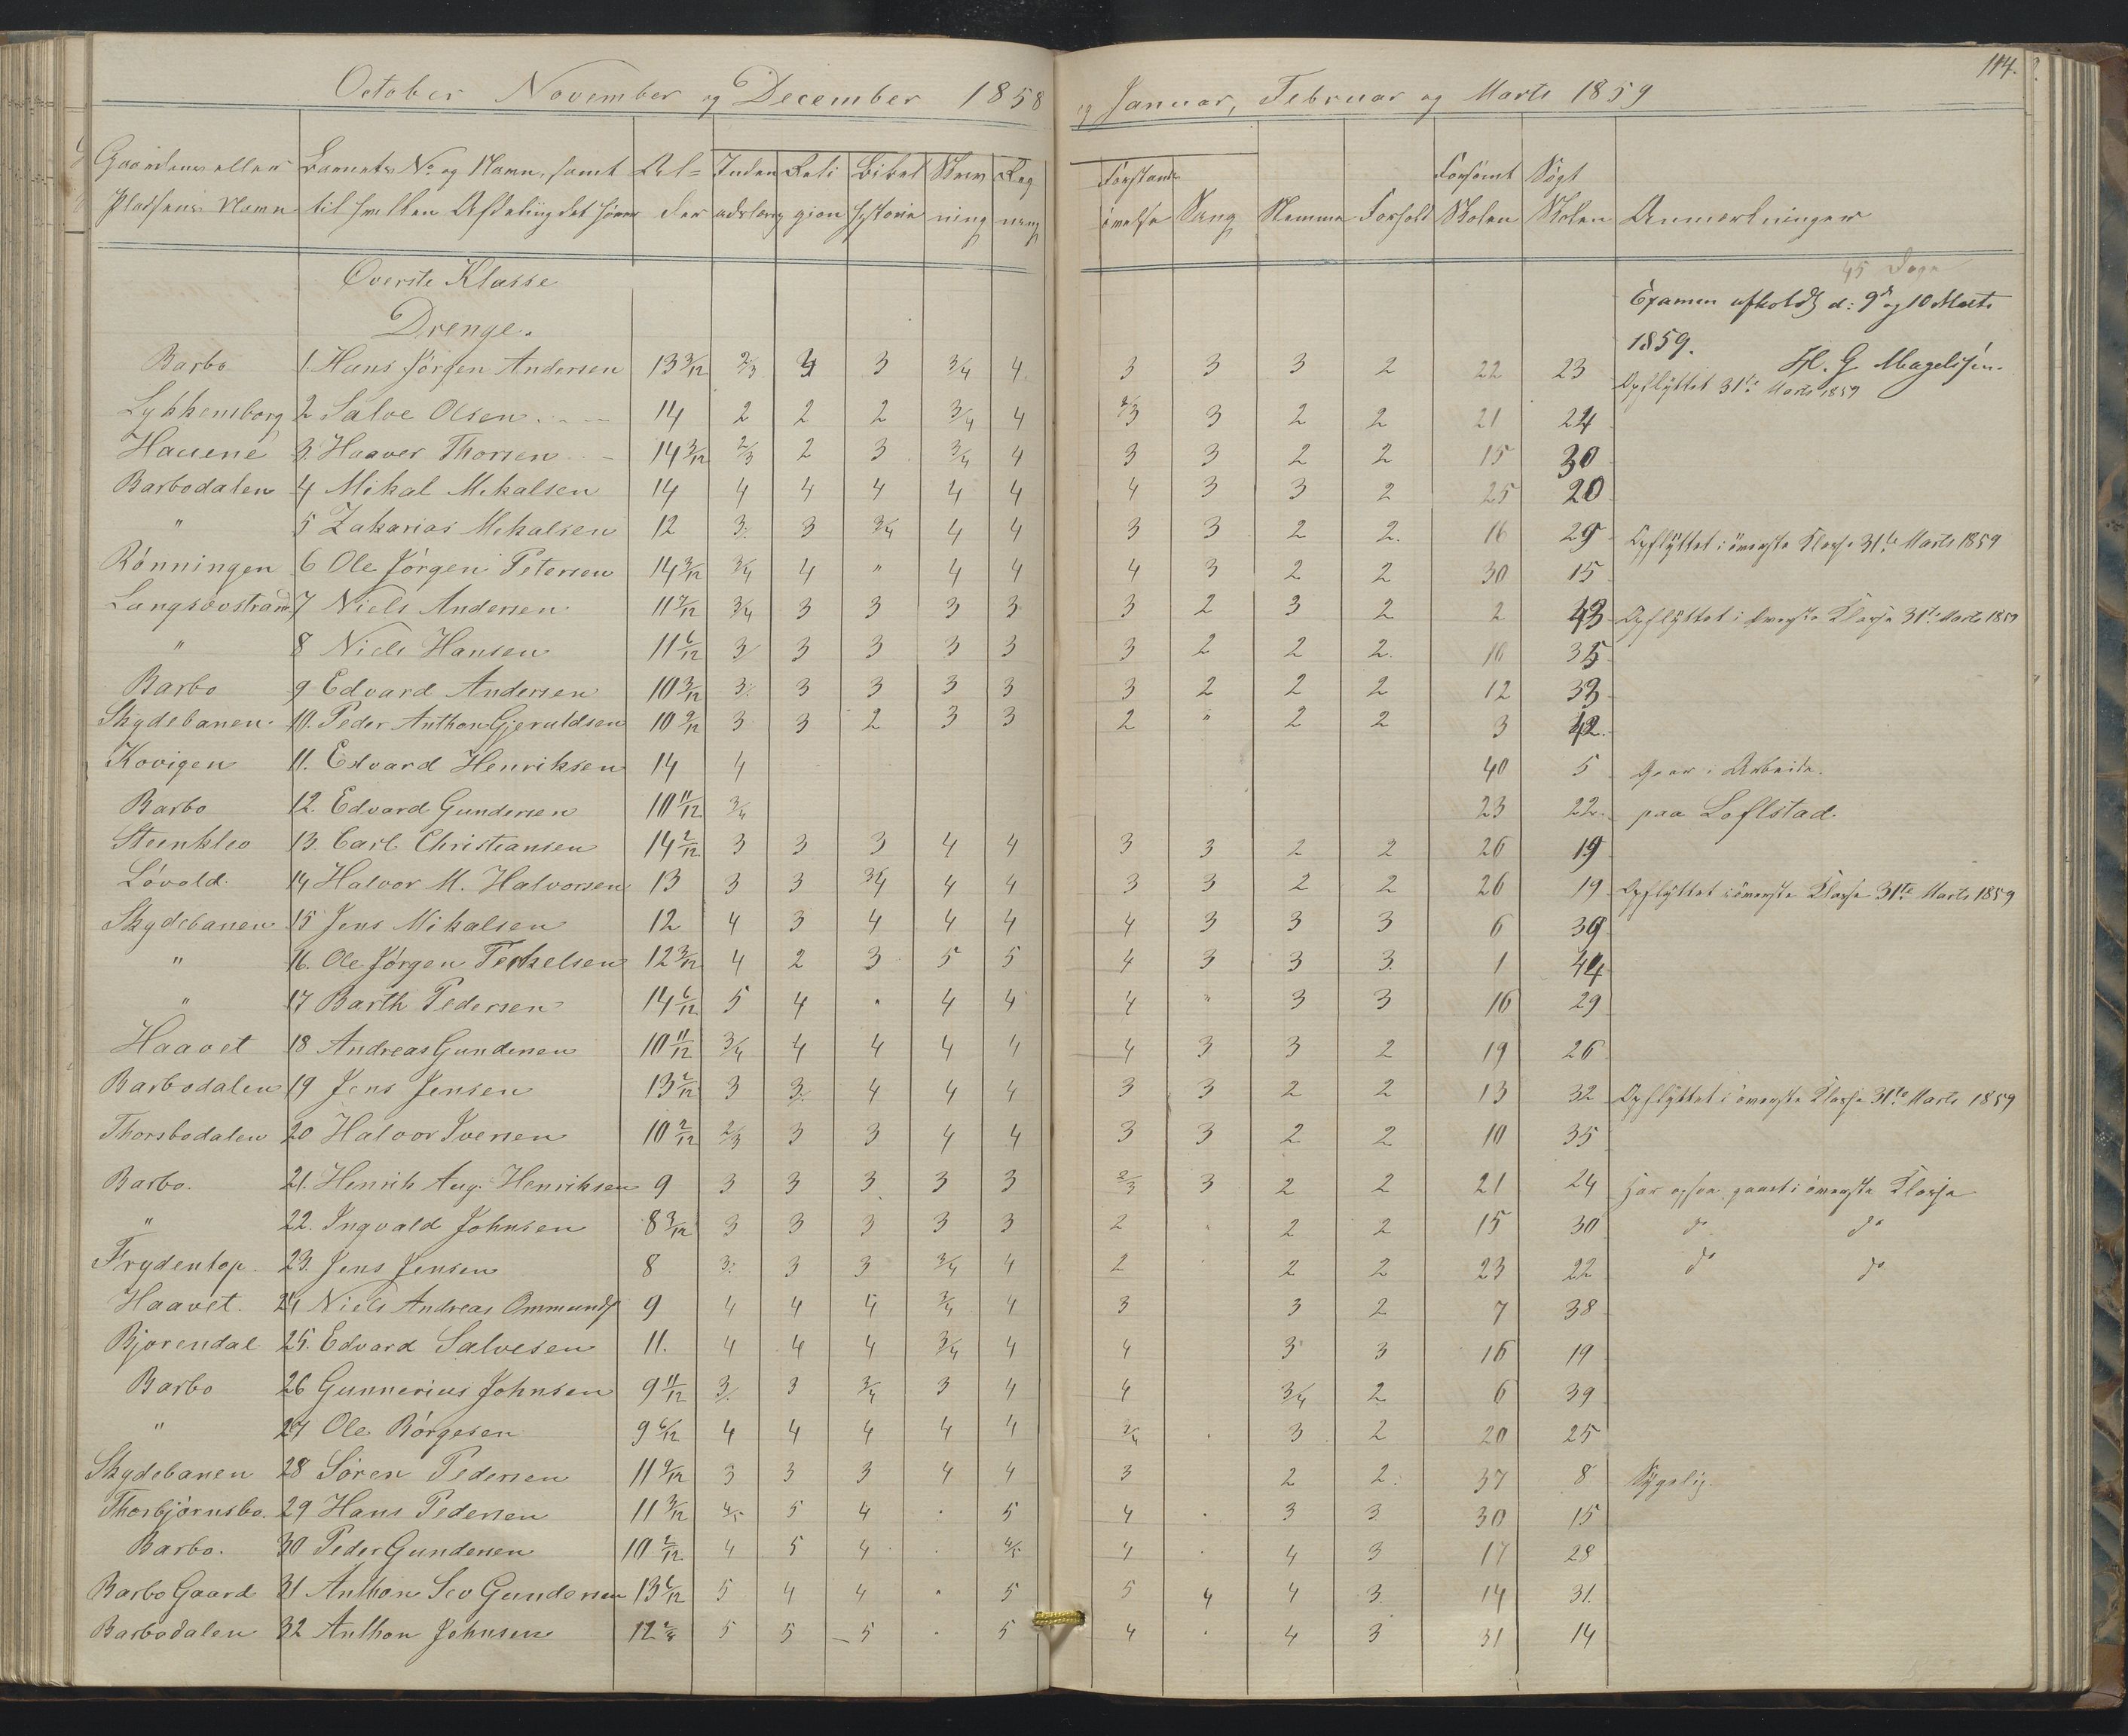 114.
October November og December 1858
og Januar, Februar og Marts 1859
Gaardens eller Barnets No og Navn, samt Al= Inden Reli Bibel Skriv Reg Forstands Forsømt Søgt
Pladsens Navn til hvilken Afdeling det hører der adslæsg gion historie ning ning øvelse Sang Nemme Forhold Skolen Skolen Anmerkninger
45 Dage
Överste Klasse
Examen afholdt d: 9de og 10 Marts
Drenge.
1859.
H. G. Magelssen.
Barbo 1. Hans Jörgen Andersen 13 3/12 2/3 4 3 3/4 4. 3 3 3 2 22 23 Opflyttet 31te Marts 1859
Lykkensborg 2 Salve Olsen 14 2 2 2 3/4 4 2/3 3 2 2 21 24
Hauene 3. Haaver Thorsen 14 3/12 2/3 2 3 3/4 4 3 3 2 2 15 30
Barbodalen 4 Mikal Mikalsen 14 4 4 4 4 4 4 3 3 2 25 20
" 5 Zakarias Mikalsen 12 3. 3 3/4 4 4 3 3 2 2. 16 29 Opflyttet i överste Klasse 31te Marts 1859
Rönningen 6 Ole Jörgen Petersen 14 3/12 3/4 4 " 4 4 4 3 2 2 30 15
Langsövstrand 7 Niels Andersen 11 7/12 3/4 3 3 3 3 3 2 3 2 2 43 Opflyttet i överste Klasse 31te Marts 1859
" 8 Niels Hansen 11 6/12 3 3 3 3 3 3 2 2 2. 10 35
Barbo 9 Edvard Andersen 10 3/12 3. 3 3 3 3 3 2 2 2 12 33
Skydebanen 10. Peder Anthon Gjeruldsen 10 9/12 3 3 2 3 3 2 " 2 2 3 42.
Kovigen 11. Edvard Henriksen 14 4 40 5 Gaar i Arbeide.
Barbo 12. Edvard Gundersen 10 11/12 3/4 23 22. paa Loftstad.
Steenkleo 13. Carl Christiansen 14 2/12 3 3 3 4 4 3 3 2 2 26 19
Lövold. 14 Halvor M. Halvorsen 13 3 3 3/4 4 4 3 3 2 2 26 19 Opflyttet i överste Klasse 31te Marts 1859
Skydebanen 15 Jens Mikalsen 12 4 3 4 4 4 4 3 3 3 6 39
" 16. Ole Jörgen Terkelsen 12 3/12 4 2 3 5 5 4 3 3 3. 1 44
" 17 Barth Pedersen 14 6/12 5 4 . 4 4 4 " 3 3 16 29
Haavet 18 Andreas Gundersen 10 11/12 3/4 4 4 4 4 4 3 3 2 19 26
Barbodalen 19 Jens Jensen 13 2/12 3 3. 4 4 4 3 3 2 2 13 32 Opflyttet i överste Klasse 31te Marts 1859
Thorsbodalen 20 Halvor Iversen 10 2/12 2/3 3 3 4 4 3 3 2 2 10 35
Barbo. 21. Henrik Aug. Henriksen 9 3 3 3 3 3 2/3 3 2 2 21 24 har ogsaa gaaet i överste Klasse
" 22. Ingvald Johnsen 8 3/12 3 3 3 3 3 2 . 2 2 15 30 do do
Frydentop. 23. Jens Jensen 8 3. 3 3 3/4 4 2 . 2 2 23 22 do do
Haavet. 24 Niels Andreas Ommunds 9 4 4 4 3/4 4 3 3 2 7 38
Bjorendal 25. Edvard Salvesen 11. 4 4 4 3/4 4 4 3 3 16 19
Barbo 26 Gunnerius Johnsen 9 11/12 3/. 3 3/4 3 4 4 3/4 2 6 39
" 27 Ole Börgesen 9 6/12 4 4 4 4 4 3/4 . 3 2 20 25
Skydebanen 28 Sören Pedersen 11 9/12 3 3 3 4 4 3 2 2. 37 8 Sygelig.
Thorbjörnsbo. 29 Hans Pedersen 11 3/12 4/5 5 4 . 5 4 . 3 3 30 15
Barbo. 30 Peder Gundersen 10 2/12 4 5 4 . 4/5 4 . 4 3 17 28
Barbo Gaard 31 Anthon Seo Gundersen 13 6/12 5 4 4 . 5 5 4 4 3. 14 31.
Barbodalen 32 Anthon Johnsen 12 5 5 5 . 5 4 . 4 3 31 14